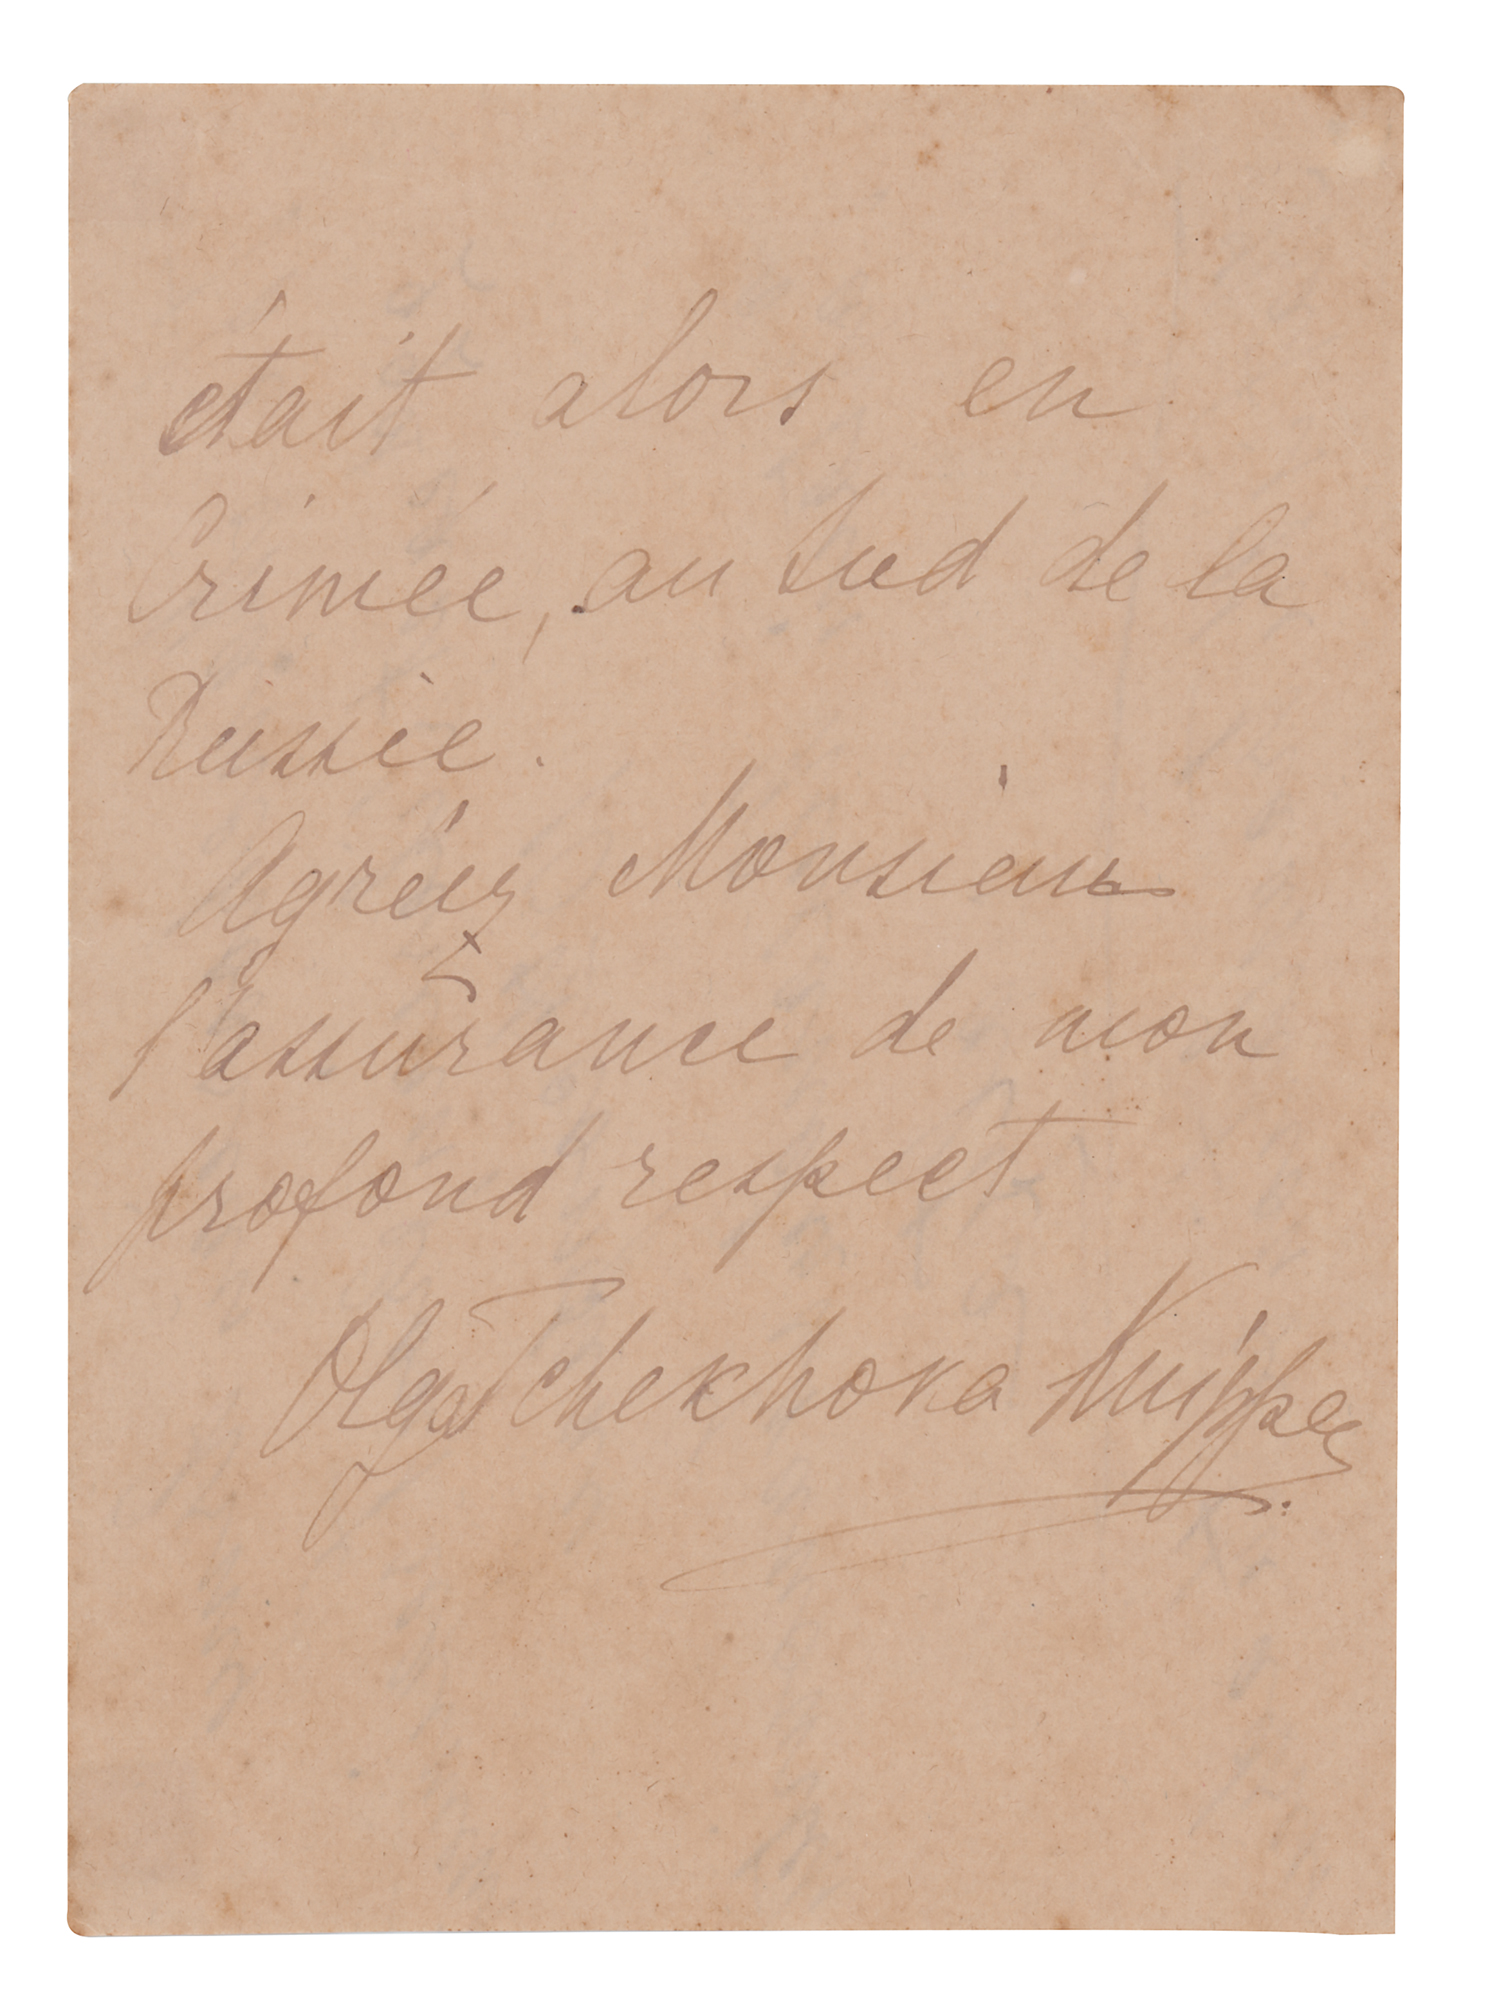 était alors en
Crimée, au sud de la
Russie.
Agréez Monsieur
l'assurance de mon
profond respect
Olga Tchekhova Knipper.